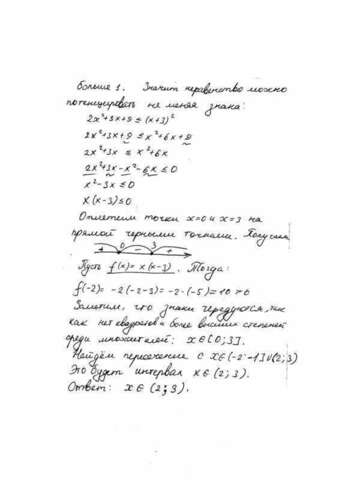 больше 1. Значит неравенство можно
потенцировать не меняя знака:
2x²+3x+9 ≤ (x+3)²
2x²+3x+9 ≤ x²+6x+9
2x²+3x ≤ x²+6x
2x²+3x-x²-6x ≤ 0
x²-3x ≤ 0
x(x-3) ≤ 0
Отметим точки x=0 и x=3 на
прямой черными точками. Получим
+ 0 - 3 +
Пусть f(x) = x(x-3). Тогда:
f(-2) = -2(-2-3) = -2·(-5) = 10 > 0
Заметим, что знаки чередуются, так
как нет квадратов и более высших степеней
среди множителей: x∈[0;3].
Найдём пересечение с x∈(-2;-1]∪(2;3)
Это будет интервал x∈(2;3).
Ответ: x∈(2;3).